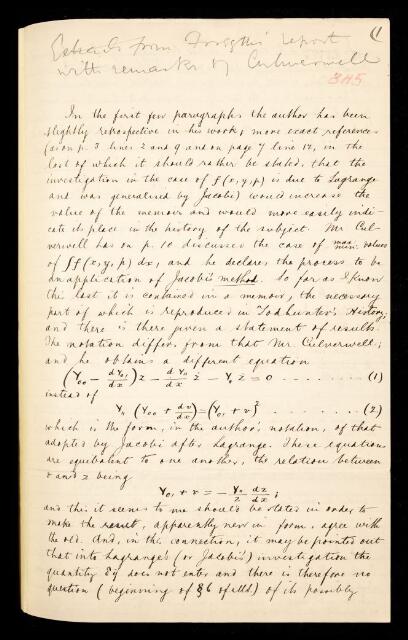 Extracts from Forsyth's report
with remarks by Culverwell
(1
In the first few paragraphs the author has been
slightly retrospective in his work; more exact references
(as on p. 3 lines 2 and 9 and on page 7 line 12, in the
last of which it should rather be stated, that the
investigation in the case of f(x,y,p) is due to Lagrange
and was generalised by Jacobi) would increase the
value of the memoir and would more easily indi-
cate its place in the history of the subject. Mr Cul-
verwell has on p. 10 discussed the case of max. min. values
of ∫f(x,y,p) dx, and he declares the process to be
an application of Jacobi's method. So far as I know
this last it is contained in a memoir, the necessary
part of which is reproduced in Todhunter's History,
and there is there given a statement of results.
The notation differs from that Mr. Culverwell;
and he obtains a different equation
(Y₀₀ − dY₀₁/dx) z − dY₁₁/dx ż − Y₁₁ z̈ = 0 . . . . . . . . (1)
instead of
Y₁₁ (Y₀₀ + dv/dx) = (Y₀₁ + v)² . . . . . . . . (2)
which is the form, in the author's notation, of that
adopted by Jacobi after Lagrange. These equations
are equivalent to one another, the relation between
v and z being
Y₀₁ + v = − Y₁₁/z dz/dx ;
and this it seems to me should be stated in order to
make the result, apparently new in form, agree with
the old. And, in this connection, it may be pointed out
that into Lagrange's (or Jacobi's) investigation the
quantity δy does not enter and there is therefore no
question (beginning of §6 of) of its possibly